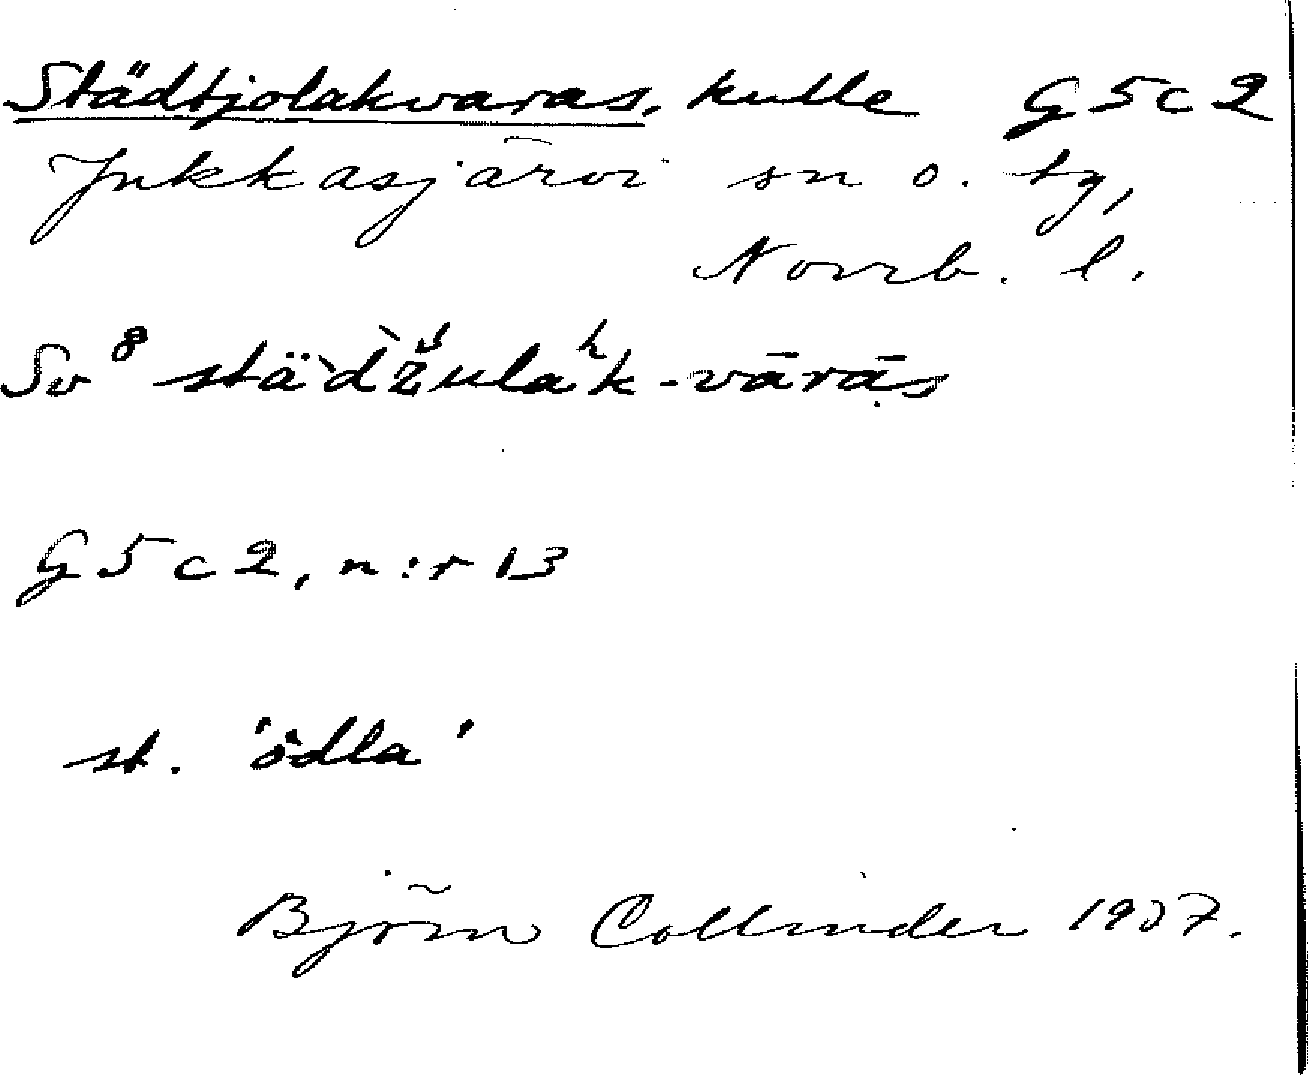 Städtjolakvaras, kulle G5c2
Jukkasjärvi sn o. tg,
Norrb. l.
Sv⁸ stä`d̀žulaʰk-vārāṣ
G5c2, n:r 13
st. 'ödla'
Björn Collinder 1937.